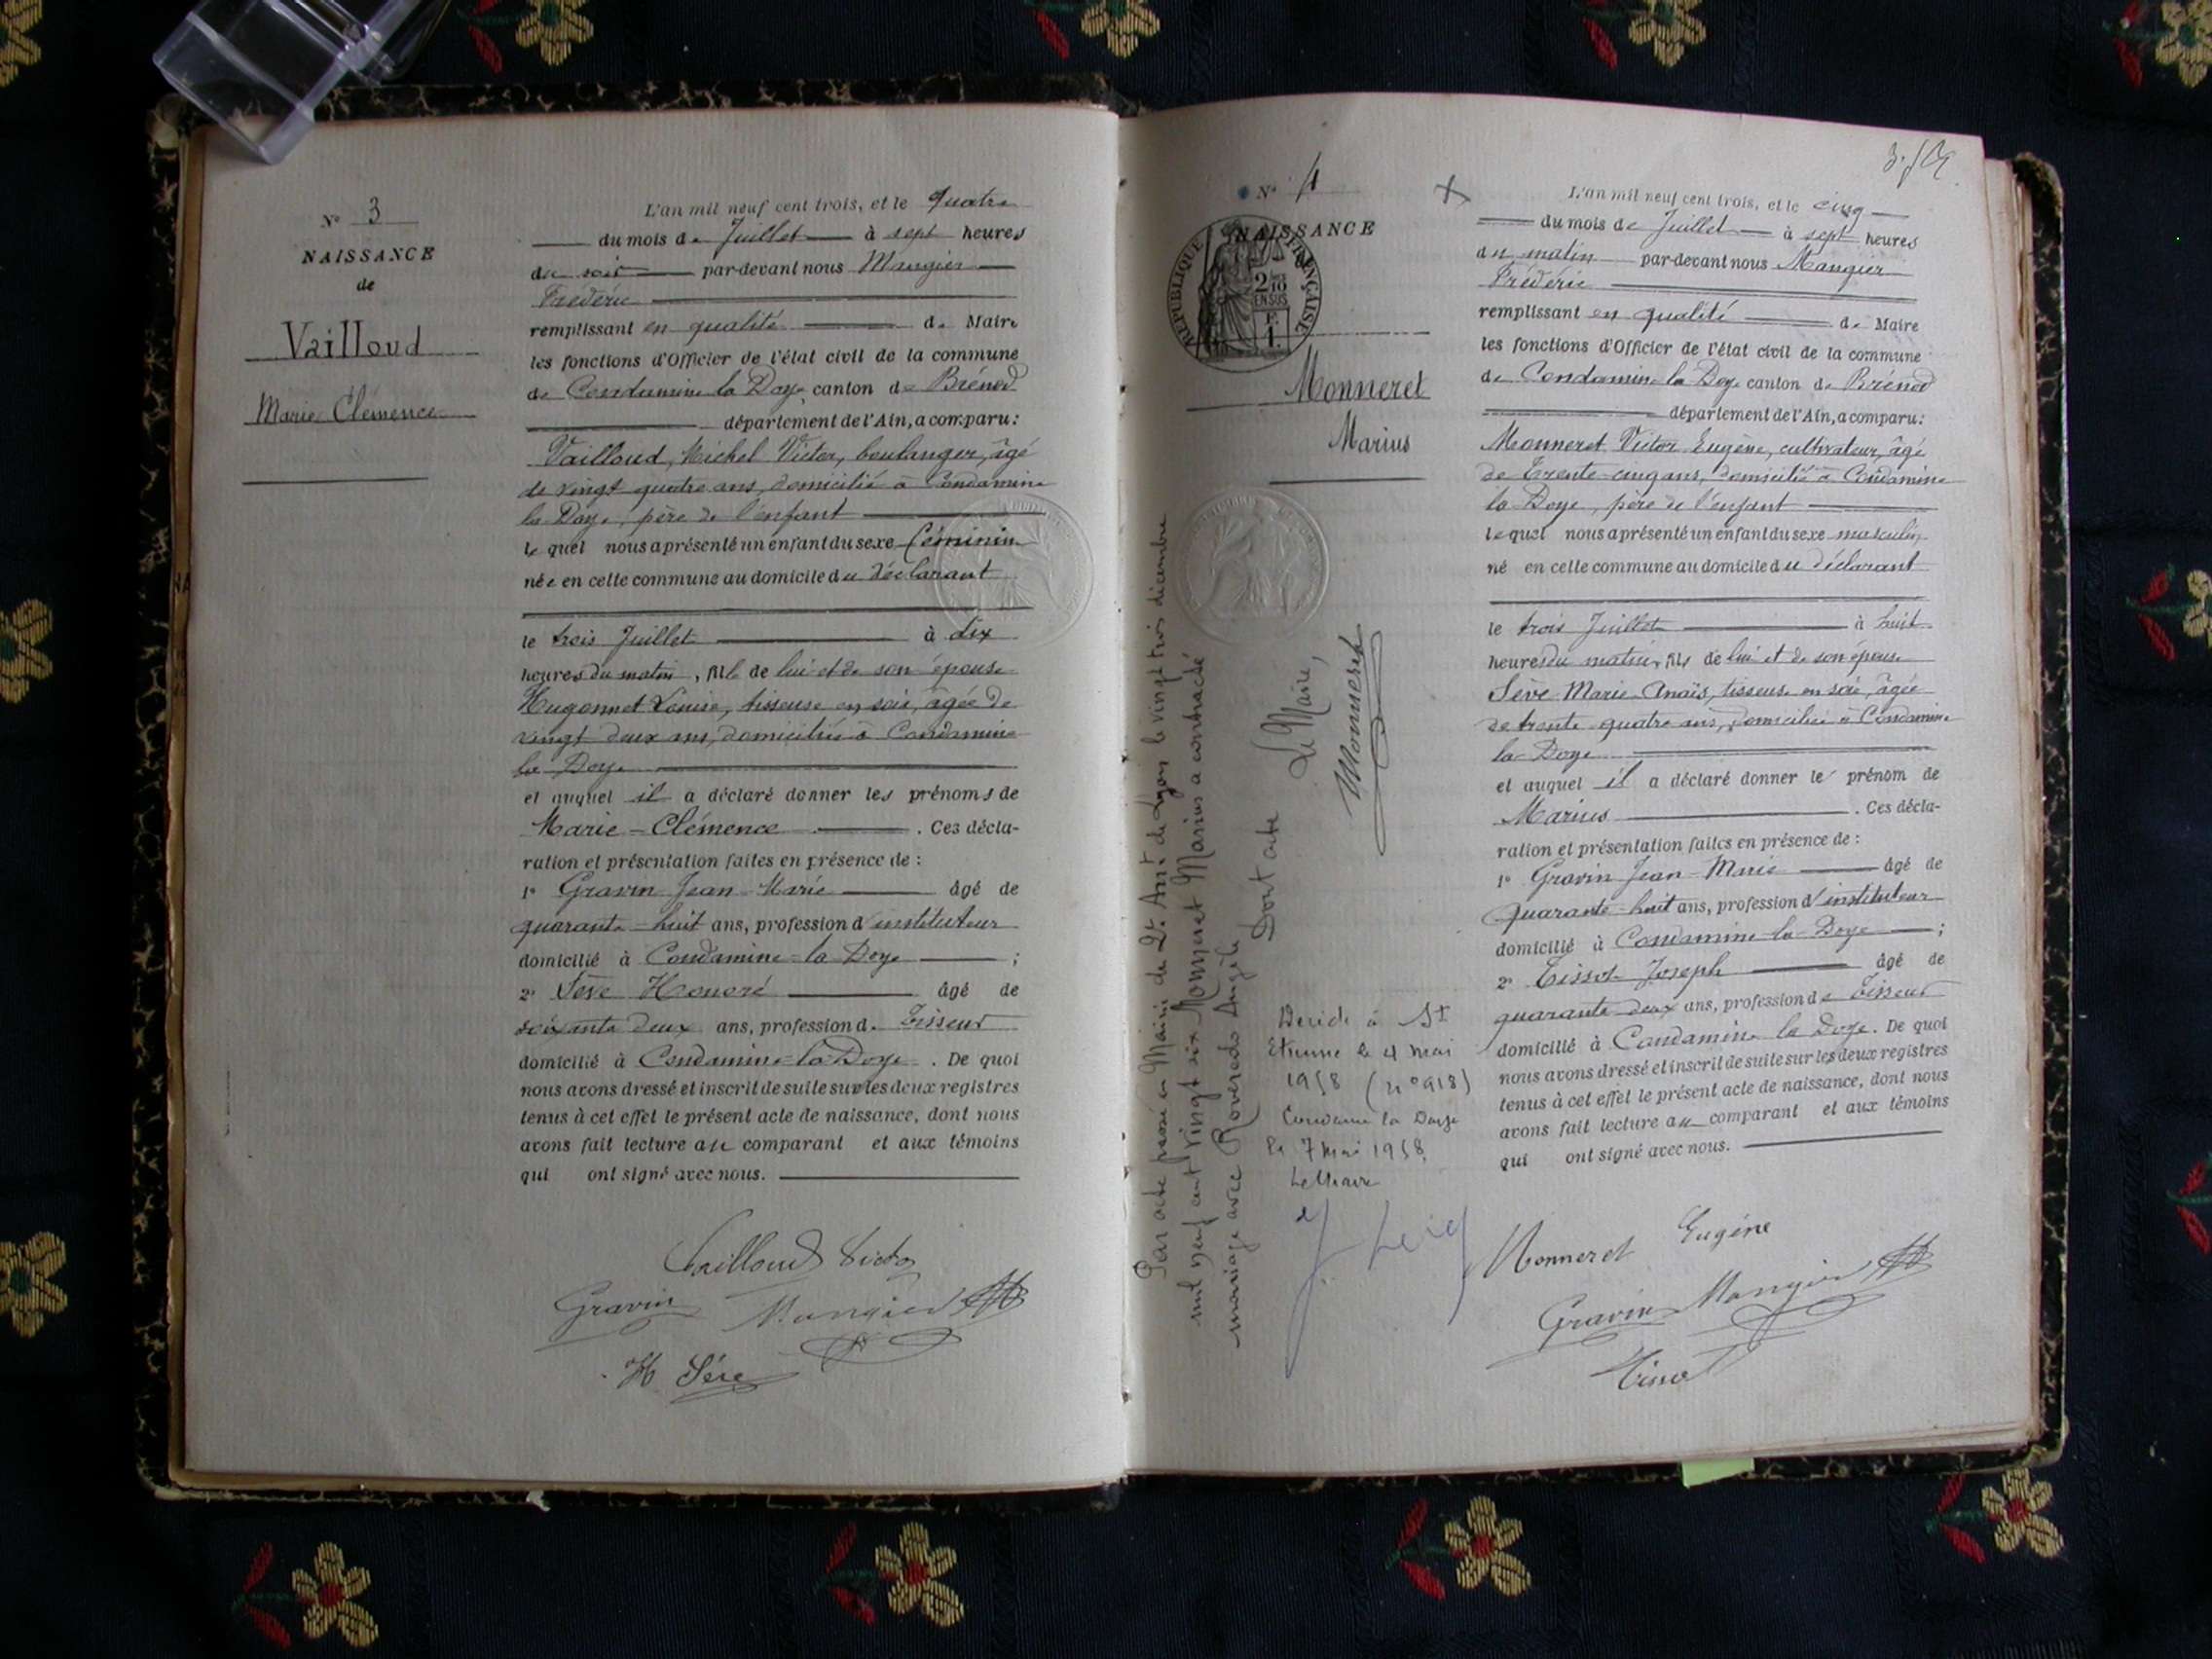 N° 3
NAISSANCE
de
Vailloud
Marie Clémence
L'an mil neuf cent trois, et le quatre
du mois de Juillet à sept heures
du soir par-devant nous Mangier
Frédéric
remplissant en qualité de Maire
les fonctions d'Officier de l'état civil de la commune
de Condamine la Doye canton de Brénod
département de l'Ain, a comparu :
Vailloud, Michel Victor, boulanger, âgé
de vingt quatre ans, domicilié à Condamine
la Doye, père de l'enfant
le quel nous a présenté un enfant du sexe féminin
née en cette commune au domicile du déclarant
le trois Juillet à dix
heures du matin, fille de lui et de son épouse
Hugonnet Louise, tisseuse en soie, âgée de
vingt deux ans, domiciliée à Condamine
la Doye
et auquel il a déclaré donner les prénoms de
Marie-Clémence. Ces décla-
ration et présentation faites en présence de :
1° Gravin Jean Marie âgé de
quarante-huit ans, profession d'instituteur
domicilié à Condamine-la Doye ;
2° Sève Honoré âgé de
soixante deux ans, profession de Tisseur
domicilié à Condamine-la Doye. De quoi
nous avons dressé et inscrit de suite sur les deux registres
tenus à cet effet le présent acte de naissance, dont nous
avons fait lecture au comparant et aux témoins
qui ont signé avec nous.
Vailloud Victor
Gravin Mangier
H Sève
N° 4
NAISSANCE
REPUBLIQUE FRANÇAISE
2/10
EN SUS
F.
1.
Monneret
Marius
Par acte passé en Mairie du 2e Arrt de Lyon le vingt trois décembre
mil neuf cent vingt six Monneret Marius a contracté
mariage avec Roveredo Angèle
Dont acte
Le Maire,
Monneret
Décédé à St
Etienne le 4 mai
1958 (n° 918)
Condamine la Doye
le 7 mai 1958
Le Maire
L'an mil neuf cent trois, et le cinq
du mois de Juillet à sept heures
du matin par-devant nous Mangier
Frédéric
remplissant en qualité de Maire
les fonctions d'Officier de l'état civil de la commune
de Condamine la Doye canton de Brénod
département de l'Ain, a comparu :
Monneret Victor Eugène, cultivateur, âgé
de Trente-cinq ans, domicilié à Condamine
la Doye, père de l'enfant
lequel nous a présenté un enfant du sexe masculin
né en cette commune au domicile du déclarant
le trois Juillet à huit
heures du matin, fils de lui et de son épouse
Sève Marie-Anaïs, tisseuse en soie, âgée
de trente quatre ans, domiciliée à Condamine
la Doye
et auquel il a déclaré donner le prénom de
Marius. Ces décla-
ration et présentation faites en présence de :
1° Gravin Jean-Marie âgé de
quarante-huit ans, profession d'instituteur
domicilié à Condamine-la Doye ;
2° Tissot Joseph âgé de
quarante deux ans, profession de Tisseur
domicilié à Condamine la Doye. De quoi
nous avons dressé et inscrit de suite sur les deux registres
tenus à cet effet le présent acte de naissance, dont nous
avons fait lecture au comparant et aux témoins
qui ont signé avec nous.
Monneret Eugène
Gravin Mangier
Tissot